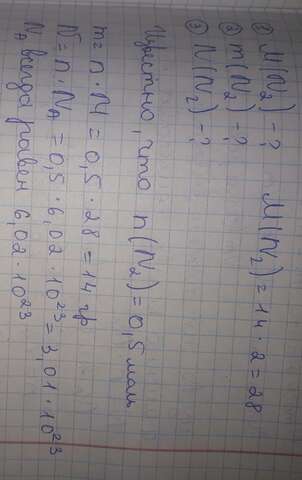 ② M(N₂) -? M(N₂)=14·2=28
③ m(N₂) -?
③ N(N₂) -?
Известно, что n(N₂)=0,5 моль
m=n·M=0,5·28=14 гр
N=n·N_A=0,5·6,02·10²³=3,01·10²³
N_A всегда равен 6,02·10²³